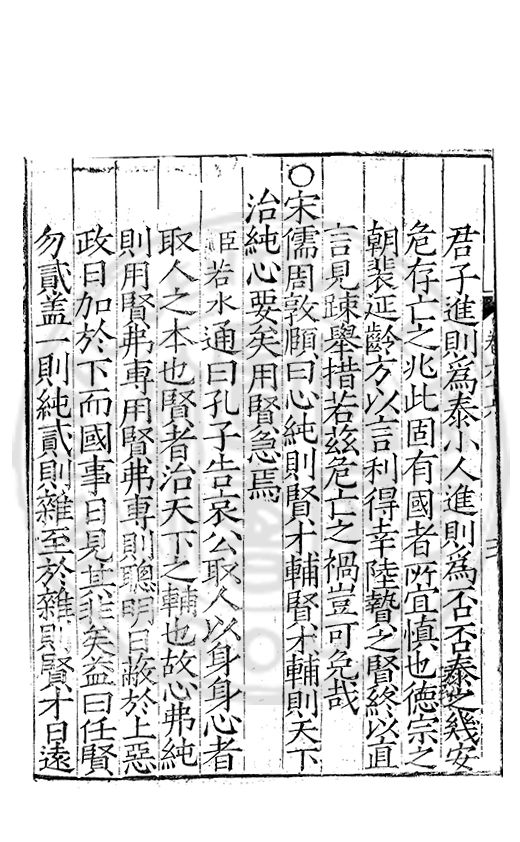 君子進則為泰小人進則為否否泰之幾安
危存亡之兆此固有國者所宜慎也德宗之
朝裴延齡方以言利得幸陸贄之賢終以直
言見踈舉措若兹危亡之禍豈可免哉
○宋儒周敦頤曰心純則賢才輔賢才輔則天下
治純心要矣用賢急焉
臣若水通曰孔子告哀公取人以身身心者
取人之本也賢者治天下之輔也故心弗純
則用賢弗專用賢弗專則聰明日蔽於上惡
政日加於下而國事日見其非矣益曰任賢
勿貳盖一則純貳則雜至於雜則賢才日遠